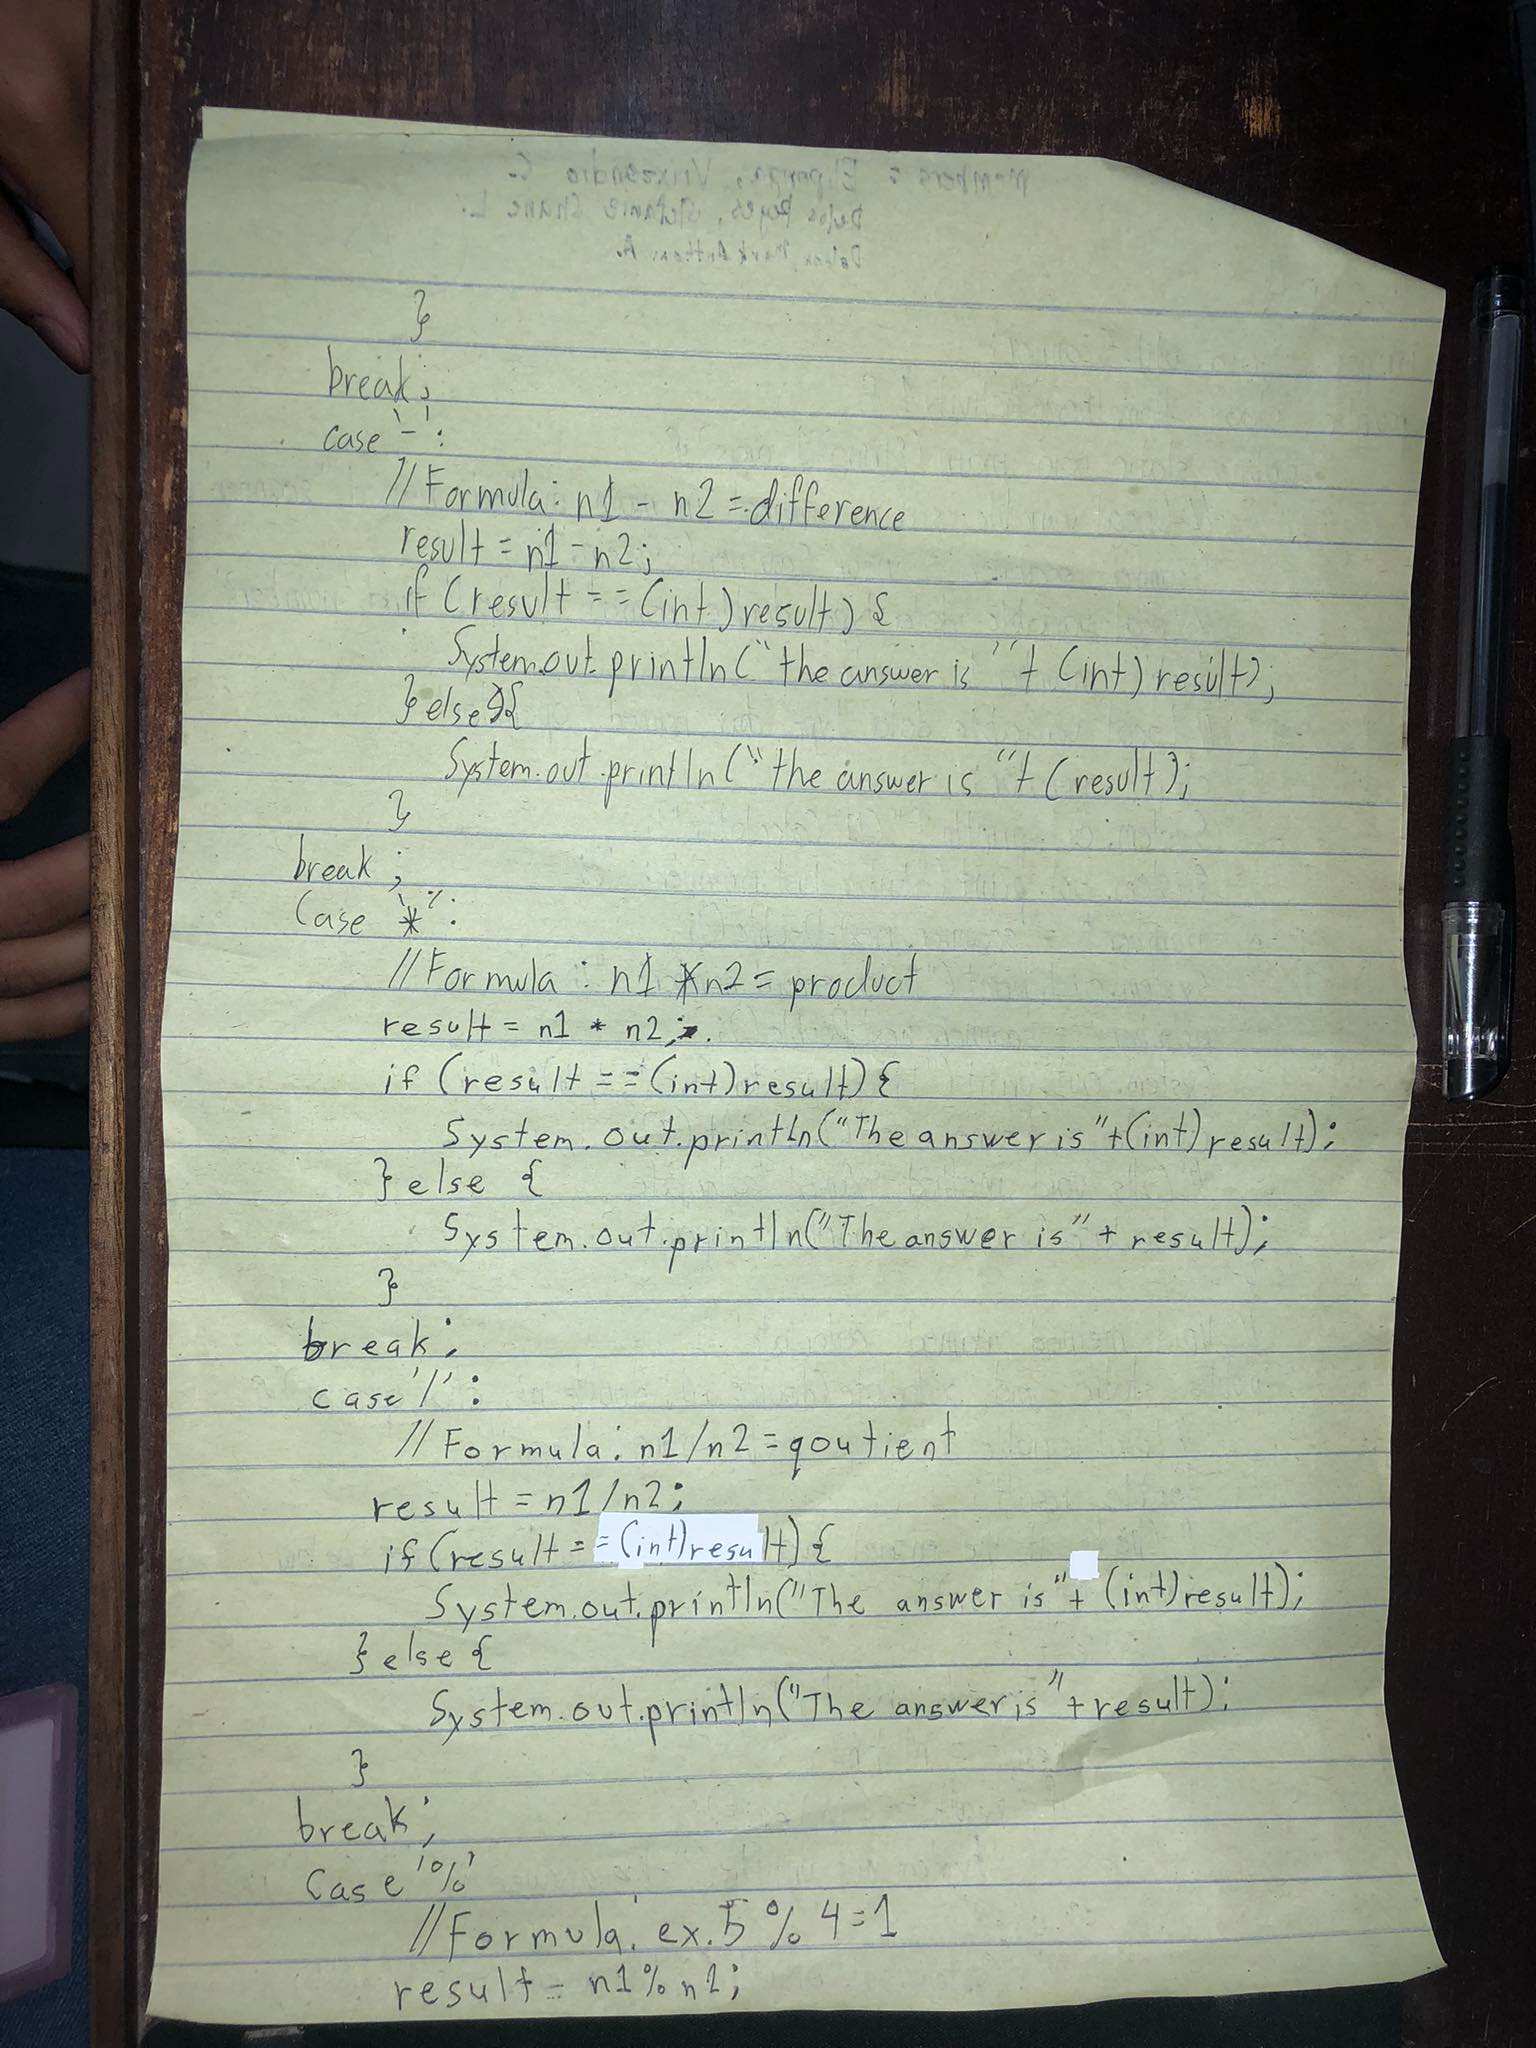 }
break;
case '-':
// Formula: n1 - n2 = difference
result = n1 - n2;
if (result == (int) result) {
System.out.println ("the answer is " + (int) result);
} else {
System.out.println ("the answer is " + (result);
}
break;
Case '*':
// Formula : n1 * n2 = product
result = n1 * n2;
if (result == (int) result) {
System.out.println("The answer is "+(int) result);
} else {
System.out.println("The answer is" + result);
}
break;
case '/':
// Formula: n1/n2 = qoutient
result = n1/n2;
if (result == (int) result) {
System.out.println("The answer is"+ (int) result);
} else {
System.out.println("The answer is "+ result);
}
break;
Case '%'
// Formula: ex. 5 % 4 = 1
result = n1 % n2;